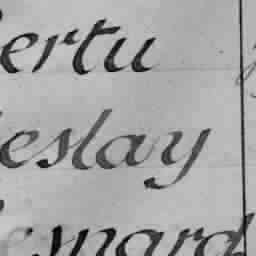 ertu
eslay
esnard